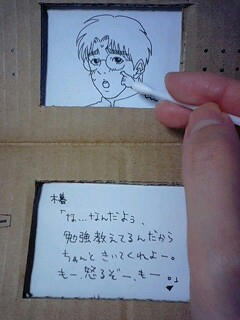 木暮
「な…なんだよぅ、
勉強教えてるんだから
ちゃんときいてくれよー。
もー、怒るぞー、もー。」